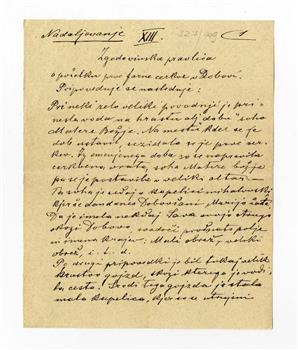 Nadaljovanje XIII. 1
Zgodovinska pravlica
o početku prve farne cerkve v Dobovi.
Pripoveduje se naslednje:
Pri neki zelo veliki povodnji je pri-
nesla voda na hrastu ali dobu "soho
Matere Božje. Na mestu kder se je
dob ustavil, sezidala se je prva cer-
kev. Iz omenjenega doba so se napravila
cerkvena vrata, soha Matere božje
pa se je postavila v veliki oltar.
Ta soha je sedaj v kapelici
kjer še dandanes Dobovčani, Marija
Da je imela nekdaj Sava svojo strugo
skozi Dobovo, svedoči prostrate polje
in imena krajev: Mali obrež, veliki
obrež, i. t. d.
Po drugi pripovedki je bil tukaj velik
hrastov gojzd, skozi kterega je vodi-
la cesta. Sredi tega gojzda je stala
mala kapelica, kjer so se utrujeni